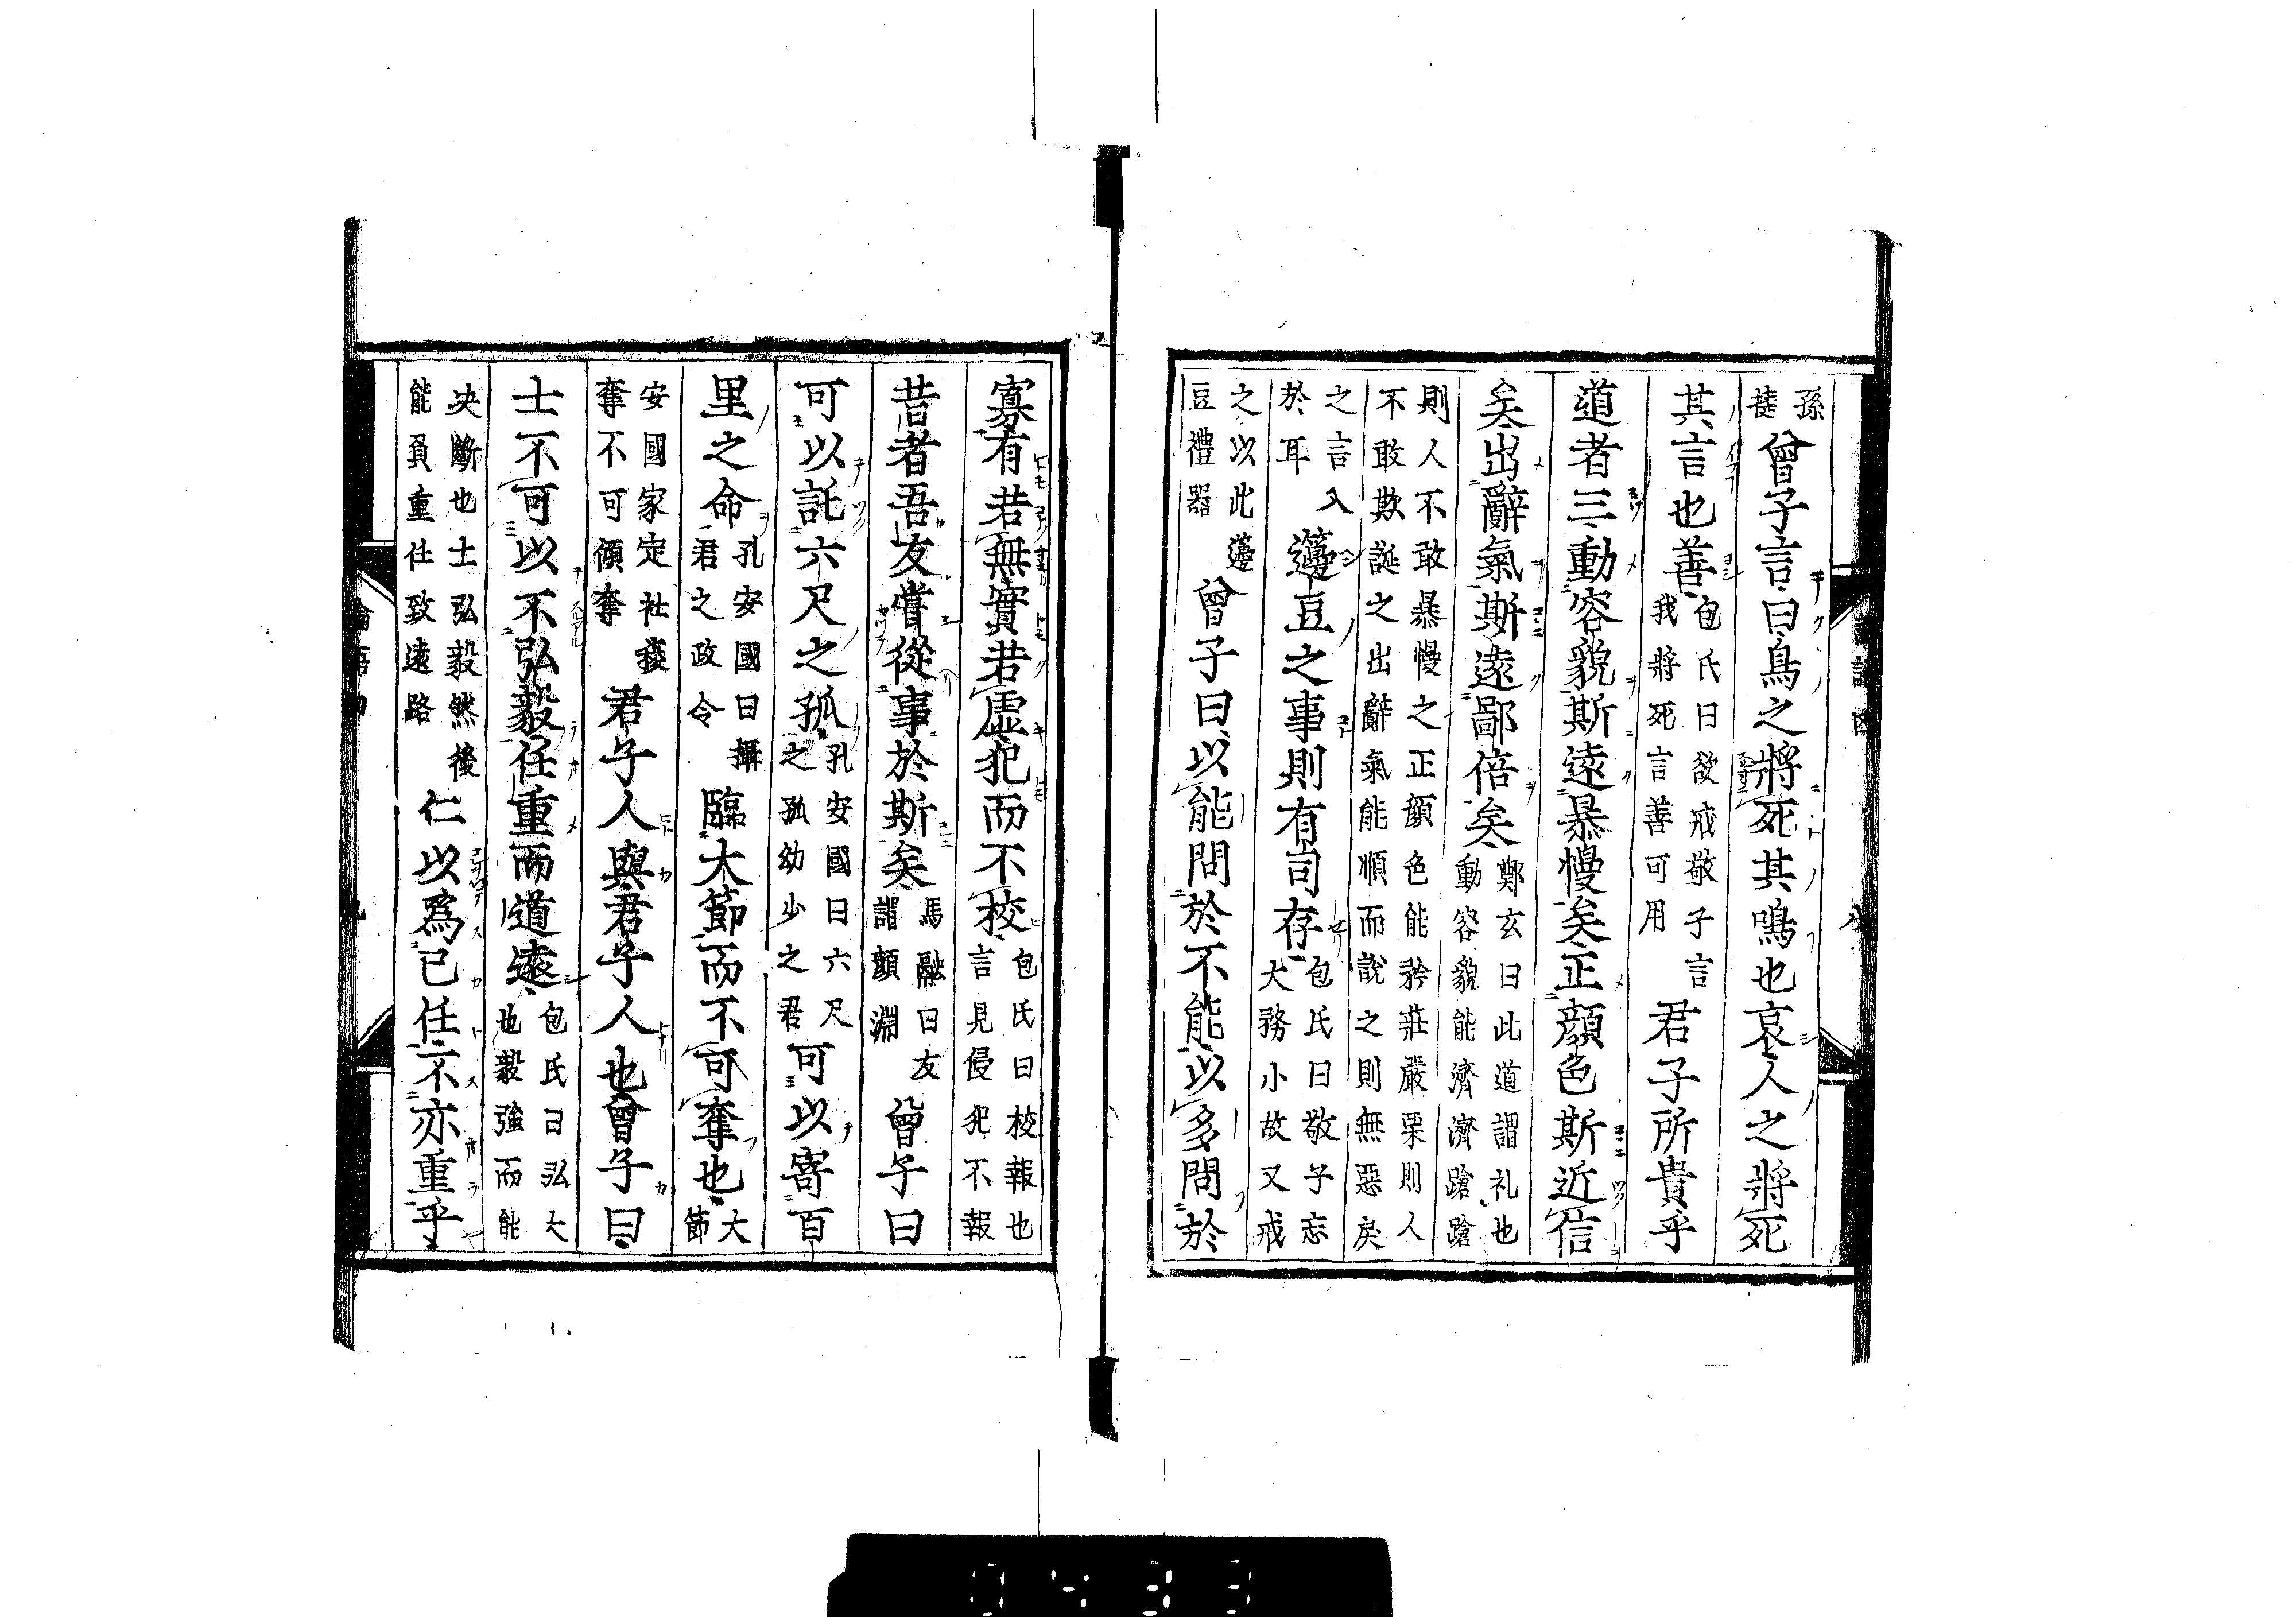 孫捷曾子言曰鳥之將死其鳴也哀人之將死
其言也善包氏曰欲戒敬子言我將死言善可用君子所貴乎
道者三動容貌斯遠暴慢矣正顔色斯近信
矣出辭氣斯遠鄙倍矣鄭玄曰此道謂礼也動容貌能濟濟蹌蹌
則人不敢暴慢之正顔色能矜莊嚴栗則人不敢欺誕之出辭氣能順而說之則無惡戾
之言入於耳籩豆之事則有司存包氏曰敬子忘大務小故又戒
之以此籩豆禮器曾子曰以能問於不能以多問於
寡有若無實若虛犯而不校包氏曰校報也言見侵犯不報
昔者吾友嘗從事於斯矣馬融曰友謂顔淵曾子曰
可以託六尺之孤孔安國曰六尺之孤幼少之君可以寄百
里之命孔安國曰攝君之政令臨大節而不可奪也大節
安國家定社稷奪不可傾奪君子人與君子人也曾子曰
士不可以不弘毅任重而道遠包氏曰弘大也毅強而能
决斷也士弘毅然後能負重任致遠路仁以爲己任不亦重乎